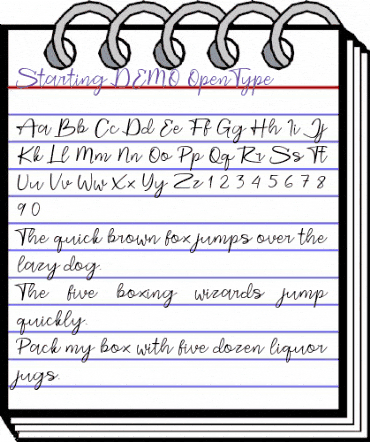 Starting DEMO OpenType
Aa Bb Cc Dd Ee Ff Gg Hh Ii Jj
Kk Ll Mm Nn Oo Pp Qq Rr Ss Tt
Uu Vv Ww Xx Yy Zz 1 2 3 4 5 6 7 8
9 0
The quick brown fox jumps over the
lazy dog.
The five boxing wizards jump
quickly.
Pack my box with five dozen liquor
jugs.